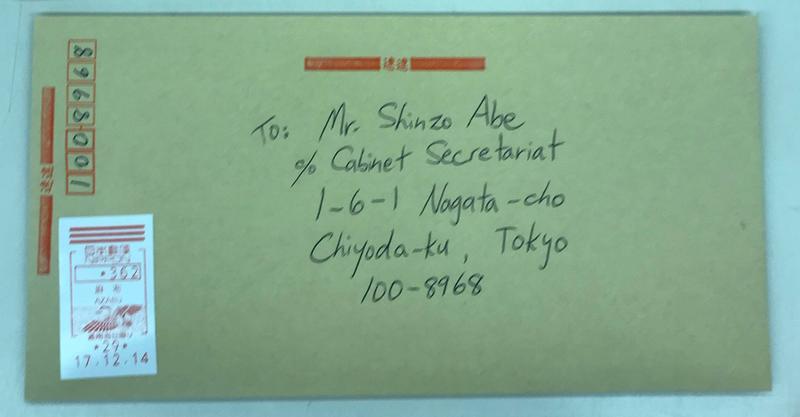 速達
速達
1008968
To: Mr. Shinzo Abe
c/o Cabinet Secretariat
1-6-1 Nagata-cho
Chiyoda-ku, Tokyo
100-8968
日本郵便
NIPPON
*362
麻布
AZABU
*29*
17.12.14